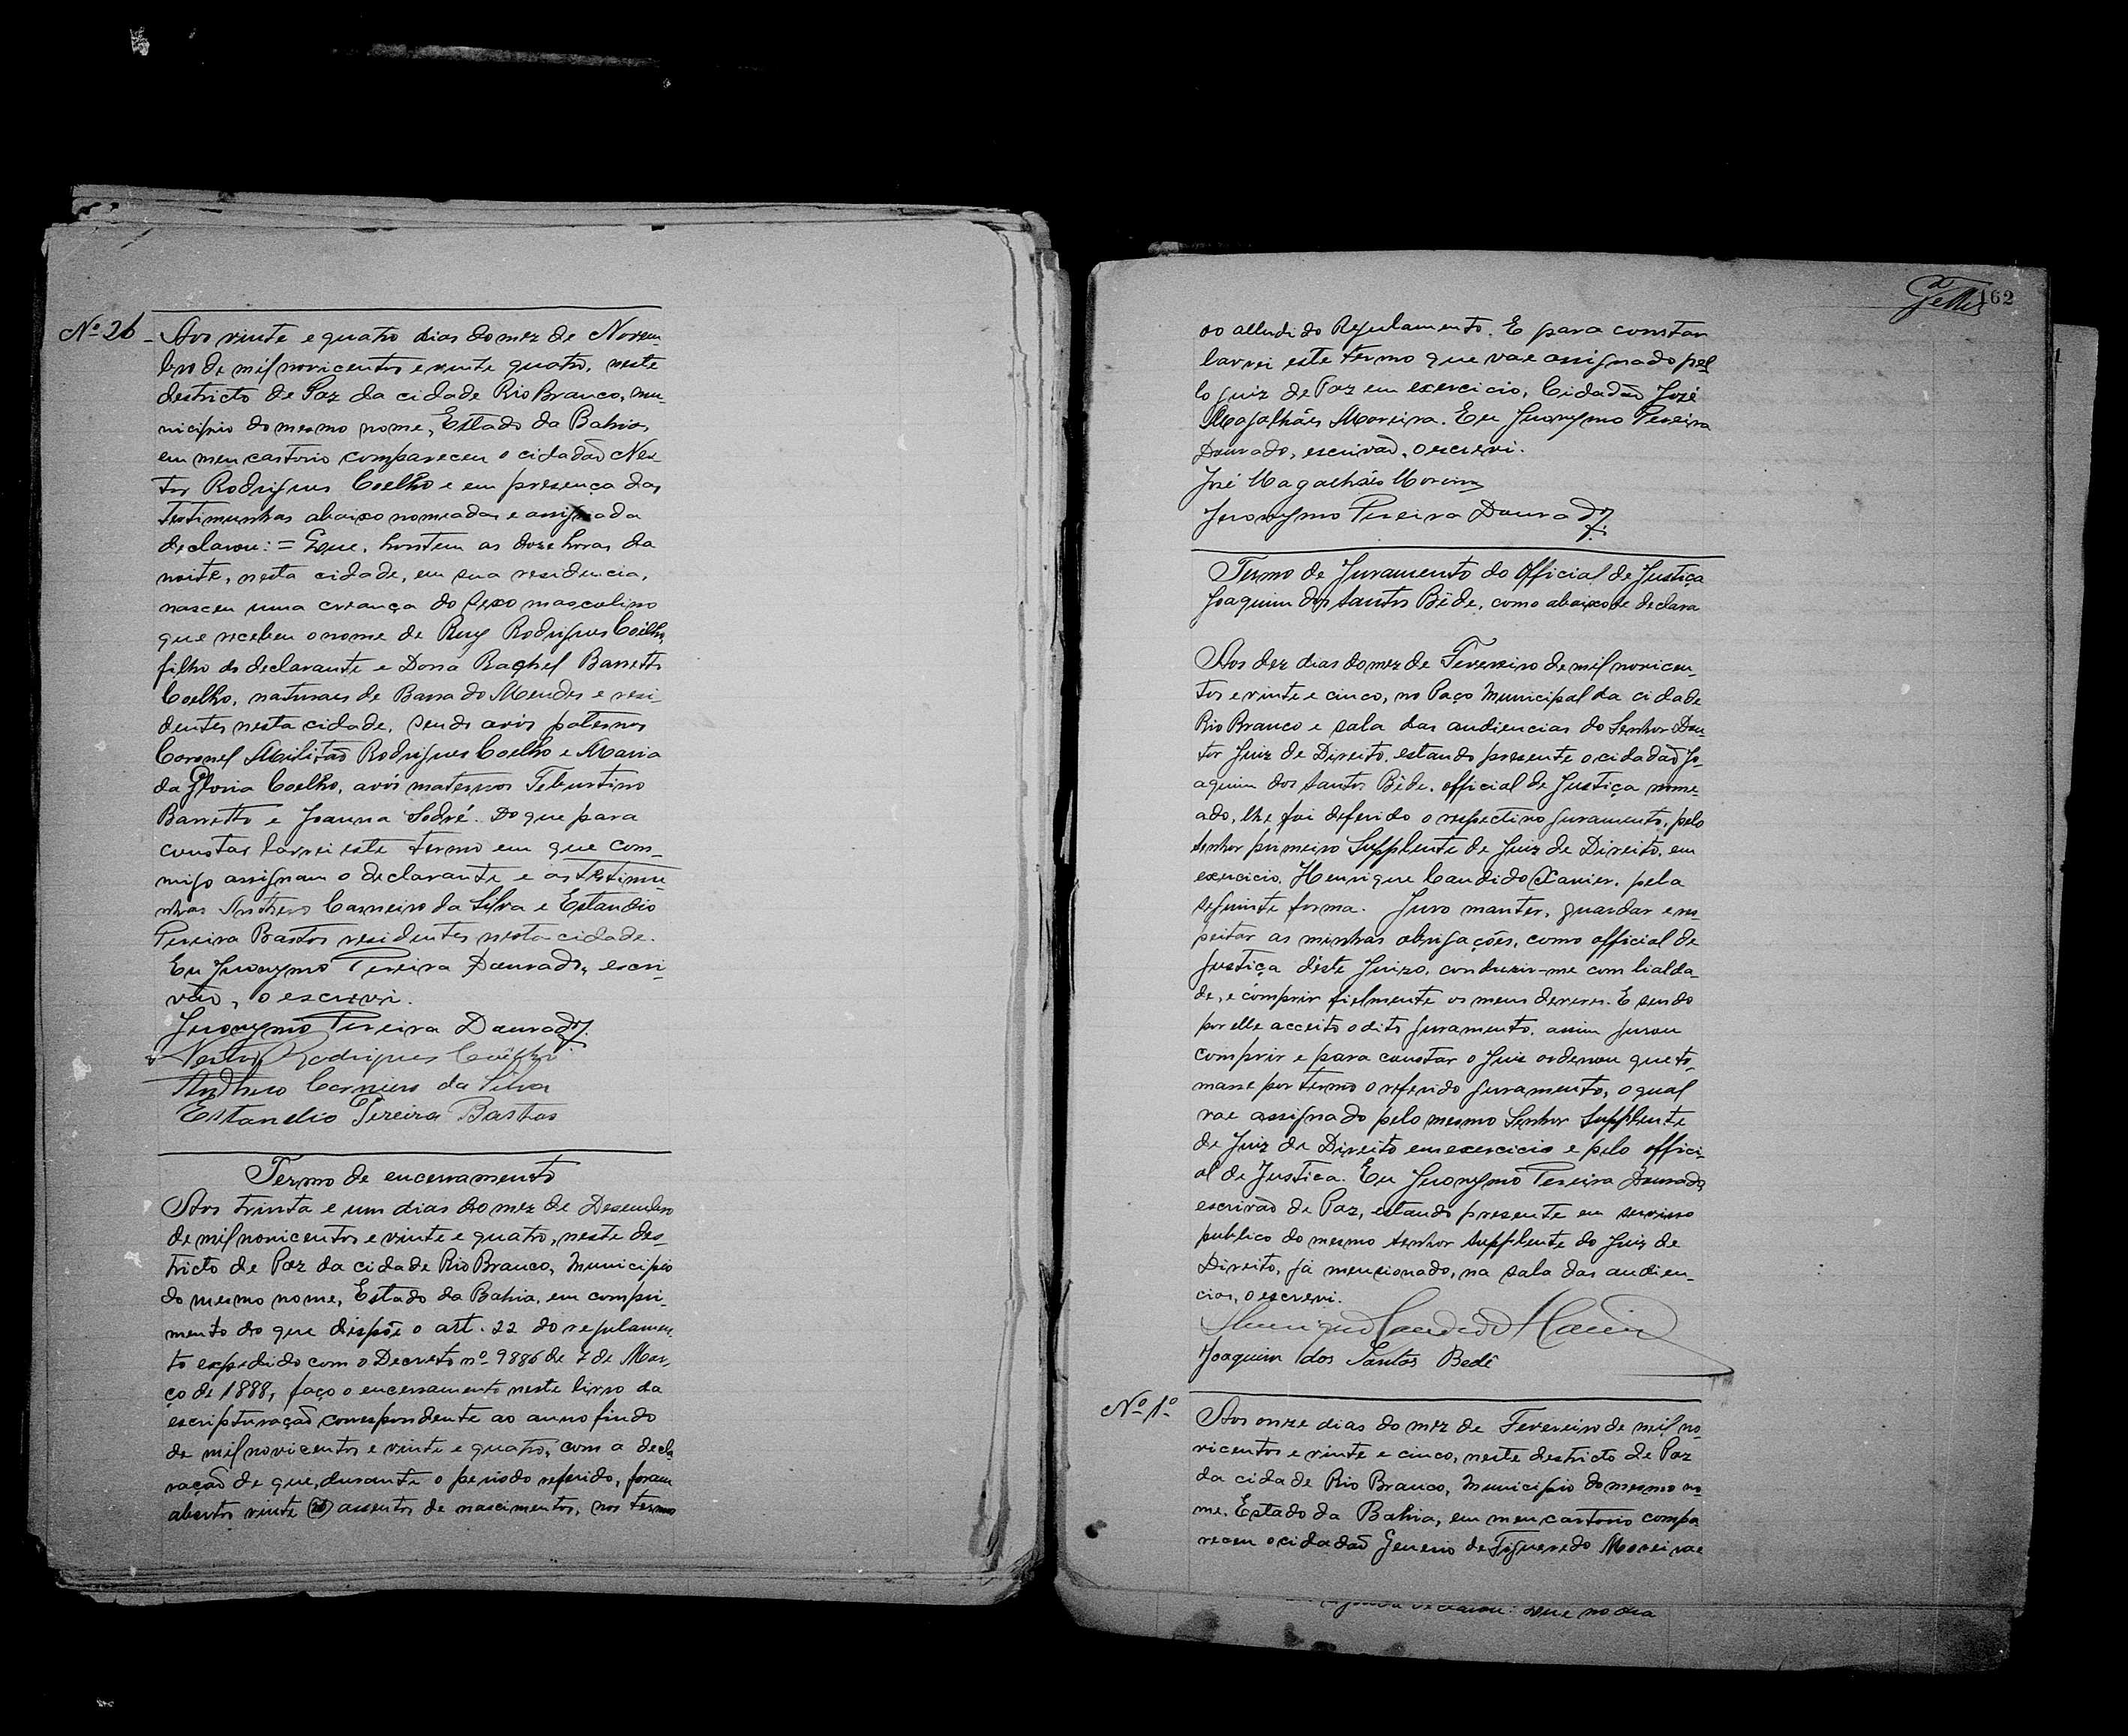 Nº 26 - Aos vinte e quatro dias do mez de Novem
bro de mil novicentos e vinte quatro, neste
destricto de Paz da cidade Rio Branco, mu-
nicipio do mesmo nome, Estado da Bahia,
em meu cartorio compareceu o cidadão Nes-
tor Rodrigues Coelho e em presença das
testimunhas abaixo nomeadas e assignada
declarou: = Que, hontem as doze horas da
noite, nesta cidade, em sua residencia,
nasceu uma creança do sexo masculino
que recebeu o nome de Ruy Rodrigues Coêlho,
filho do declarante e Dona Raghel Barretto
Coelho, naturaes de Barra do Mendes e resi-
dentes nesta cidade, sendo avós paternos
Coronel Militão Rodrigues Coelho e Maria
da Gloria Coelho, avós maternos Teburtino
Barretto e Joanna Sodré. Do que para
constar lavrei este termo em que com-
migo assignam o declarante e as testimu-
nhas Anthero Carneiro da Silva e Estandio
Pereira Bastos residentes nesta cidade.
Eu Jeronymo Pereira Dourado, escri-
vão, o escrevi.
Jeronymo Pereira Dourado
Nestor Rodrigues Coêlho
Anthero Carneiro da Silva
Estandio Pereira Bastos
Termo de encerramento
Aos trinta e um dias do mez de Desembro
de mil novicentos e vinte e quatro, neste des-
tricto de Paz da cidade Rio Branco, Municipio
do mesmo nome, Estado da Bahia, em compri-
mento do que dispõe o art. 22 do regulamen-
to expedido com o Decreto nº 9886 de 7 de Mar-
ço de 1888, faço o encerramento neste livro da
escripturação correspondente ao anno findo
de mil novicentos e vinte e quatro, com a decla
ração de que, durante o periodo referido, foram
abertos vinte assentos de nascimentos, nos termo
162
ao alludido Regulamento. E para constar
lavrei este termo que vae assignado pel
lo juiz de Paz em exercicio, Cidadão José
Magalhães Moreira. Eu Jeronymo Pereira
Dourado, escrivão, o escrevi.
José Magalhães Moreira
Jeronymo Pereira Dourado
Termo de Juramento do Official de Justiça
Joaquim dos Santos Bêde, como abaixo se declara
Aos dez dias do mez de Fevereiro de mil novicen-
tos e vinte e cinco, no Paço Municipal da cidade
Rio Branco e sala das audiencias do Senhor Dou-
tor Juiz de Direito, estando presente o cidadão Jo-
aquim dos Santos Bêde, official de Justiça nome-
ado, lhe foi deferido o respectivo juramento, pelo
senhor primeiro Supplente de Juiz de Direito, em
exercicio, Henrique Candido Xavier, pela
seguinte forma. Juro manter, guardar e res
peitar as minhas obrigações, como official de
Justiça dêste Juizo, conduzir-me com lialda-
de, e comprir fielmente os meus deveres. E sendo
por elle acceito o dito juramento, assim jurou
comprir e para constar o Juiz ordenou que to-
masse por termo o referido juramento, o qual
vae assignado pelo mesmo Senhor Supplente
de Juiz de Direito em exercicio e pelo offici-
al de Justica. Eu Jeronymo Pereira Dourado
escrivão de Paz, estando presente em serviso
publico do mesmo senhor supplente do Juiz de
Direito, já mencionado, na sala das audien-
cias, o escrevi.
Henrique Candido Xavier
Joaquim dos Santos Bedê
Nº 1º Aos onze dias do mez de Fevereiro de mil no-
vicentos e vinte e cinco, neste destricto de Paz
da cidade Rio Branco, Municipio do mesmo no-
me, Estado da Bahia, em meu cartorio compa
receu o cidadão Genesio de Figueredo Moreira e
declarou: que no dia